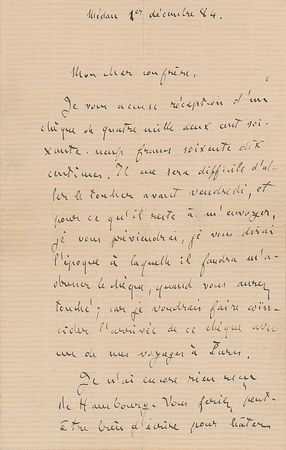 Médan 1er décembre 84.
Mon cher confrère,
Je vous accuse réception d'un
chèque de quatre mille deux cent soi-
xante-neuf francs soixante dix
centimes. Il me sera difficile d'al-
ler le toucher avant vendredi, et
pour ce qu'il reste à m'envoyer,
je vous préviendrai, je vous dirai
l'époque à laquelle il faudra m'a-
dresser le chèque, quand vous aurez
touché; car je voudrais faire coïn-
cider l'arrivée de ce chèque avec
un de mes voyages à Paris.
Je n'ai encore rien reçu
de Hambourg. Vous feriez peut-
être bien d'écrire pour hâter